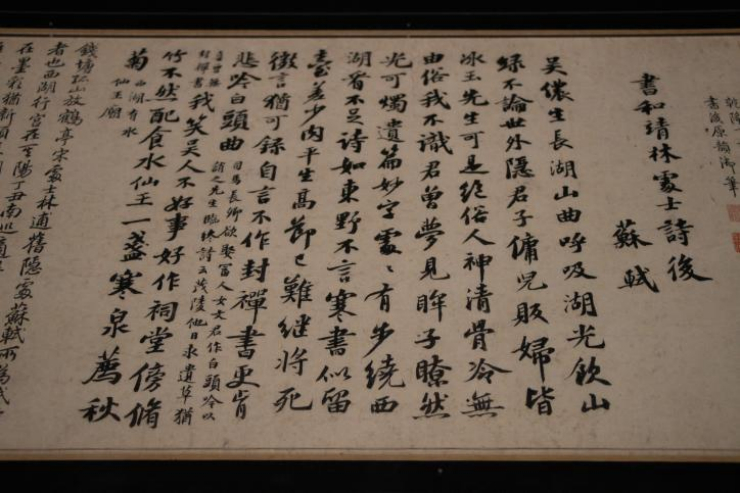 乾隆
書後原韻御筆
書和靖林處士詩後
蘇軾
吳儂生長湖山曲呼吸湖光飲山
綠不論世外隱君子傭兒販婦皆
冰玉先生可是絕俗人神清骨冷無
由俗我不識君曾夢見眸子瞭然
光可燭遺篇妙字處〻有步繞西
湖看不足詩如東野不言寒書似留
臺差少肉平生高節已難繼將死
微言猶可錄自言不作封禪書更肯
悲吟白頭曲
司馬長卿欲娶富人女文君作白頭吟以
諷之先生臨終詩云茂陵他日求遺草猶
喜曾無
封禪書
我笑吳人不好事好作祠堂傍脩
竹不然配食水仙王一盞寒泉薦秋
菊
西湖有水
仙王廟
錢塘孤山放鶴亭宋處士林逋舊隱處蘇軾所為
者也西湖行宮在其陽丁丑南巡
在墨彩猶新